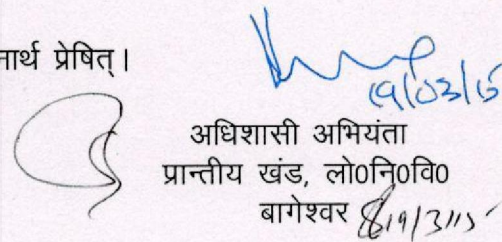 नार्थ प्रेषित्।
19/03/15
अधिशासी अभियंता
प्रान्तीय खंड, लो0नि0वि0
बागेश्वर 19/3/15